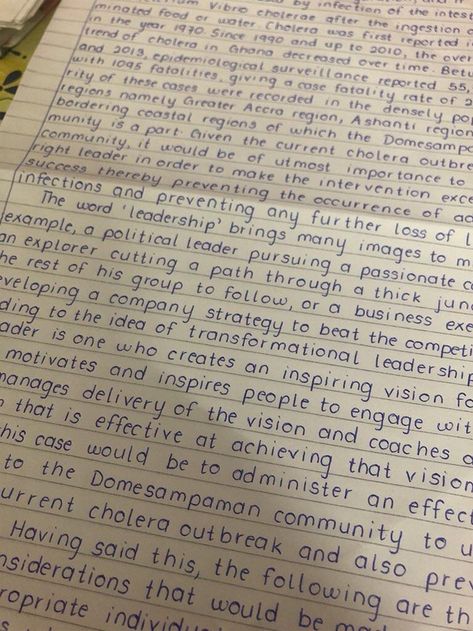 by infection of the intes
minated food or water. Cholera after the ingestion
in the year, 1970. Since 1990 and up to 2010, the over
trend of cholera in Ghana decreased over time. Bet
and 2013, epidemiological surveillance reported 55,
with 1095 fatalities, giving a case fatality rate of 2
rity of these cases were recorded in the densely po
regions namely Greater Accra region, Ashanti region
bordering coastal regions of which the Domesampa
munity is a part. Given the current cholera outbre
community, it would be of utmost importance to
right leader in order to make the intervention exce
success thereby preventing the occurrence of ad
infections and preventing any further loss of l
The word 'leadership' brings many images to m
example, a political leader pursuing a passionate c
an explorer cutting a path through a thick jun
the rest of his group to follow, or a business exe
eveloping a company strategy to beat the competi
ding to the idea of transformational leadership
ader is one who creates an inspiring vision fo
motivates and inspires people to engage wit
manages delivery of the vision and coaches a
that is effective at achieving that vision
this case would be to administer an effect
to the Domesampaman community to u
urrent cholera outbreak and also prev
Having said this, the following are th
nsiderations that would be
ropriate individu